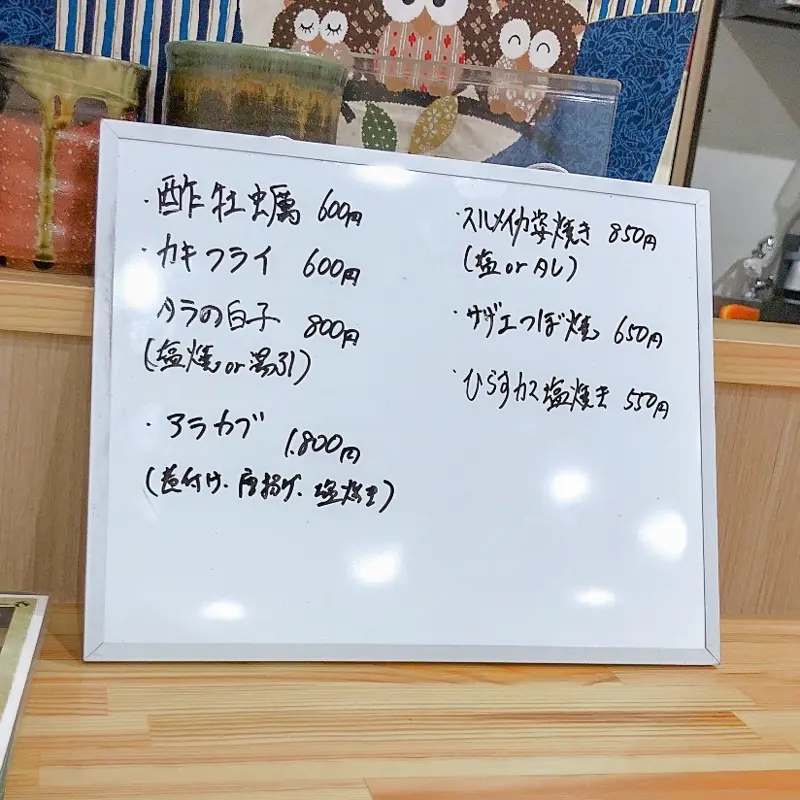 ・酢牡蠣 600円
・カキフライ 600円
タラの白子 800円
(塩焼 or 湯引)
・アラカブ 1,800円
(煮付け、唐揚げ、塩焼き)
・スルメイカ姿焼き 850円
(塩 or タレ)
・サザエつぼ焼 650円
・ひらすカマ塩焼き 550円